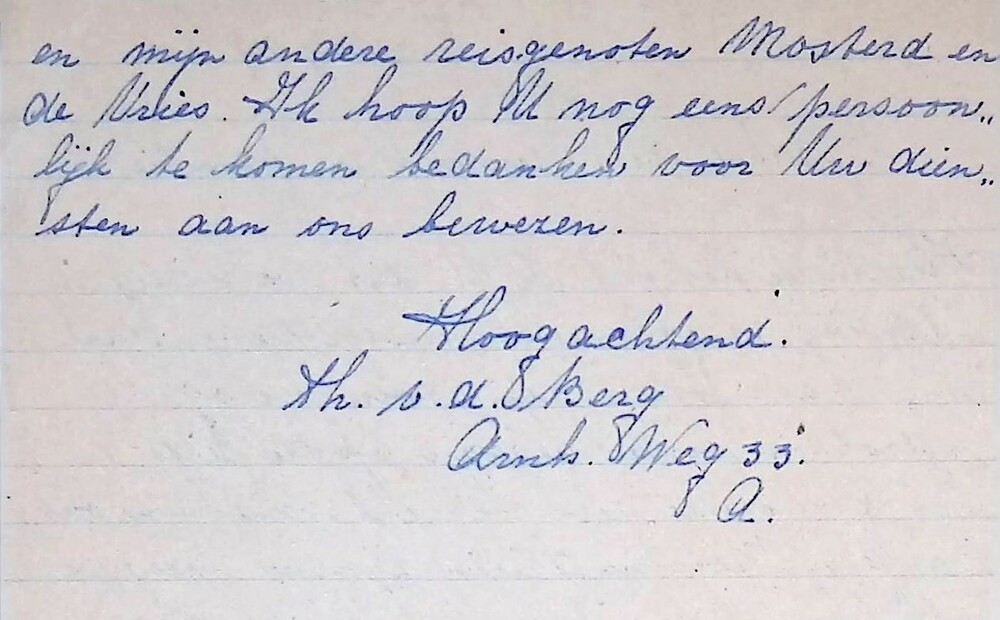 en mijn andere reisgenoten Mosterd en
de Vries. Ik hoop U nog eens persoon„
lijk te komen bedanken voor Uw dien„
sten aan ons bewezen.
Hoogachtend.
Th. v. d. Berg
Arnh. Weg 33.
A.